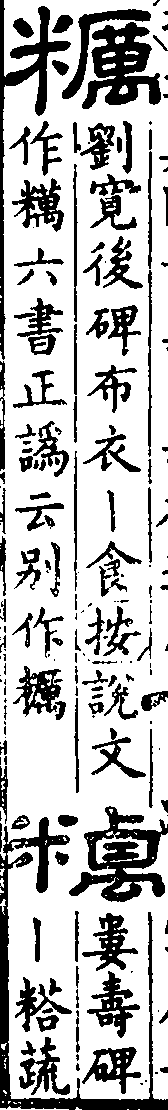 糲
劉寬後碑布衣丨食按說文
作䊪六書正譌云别作糲
婁壽碑
丨蔬